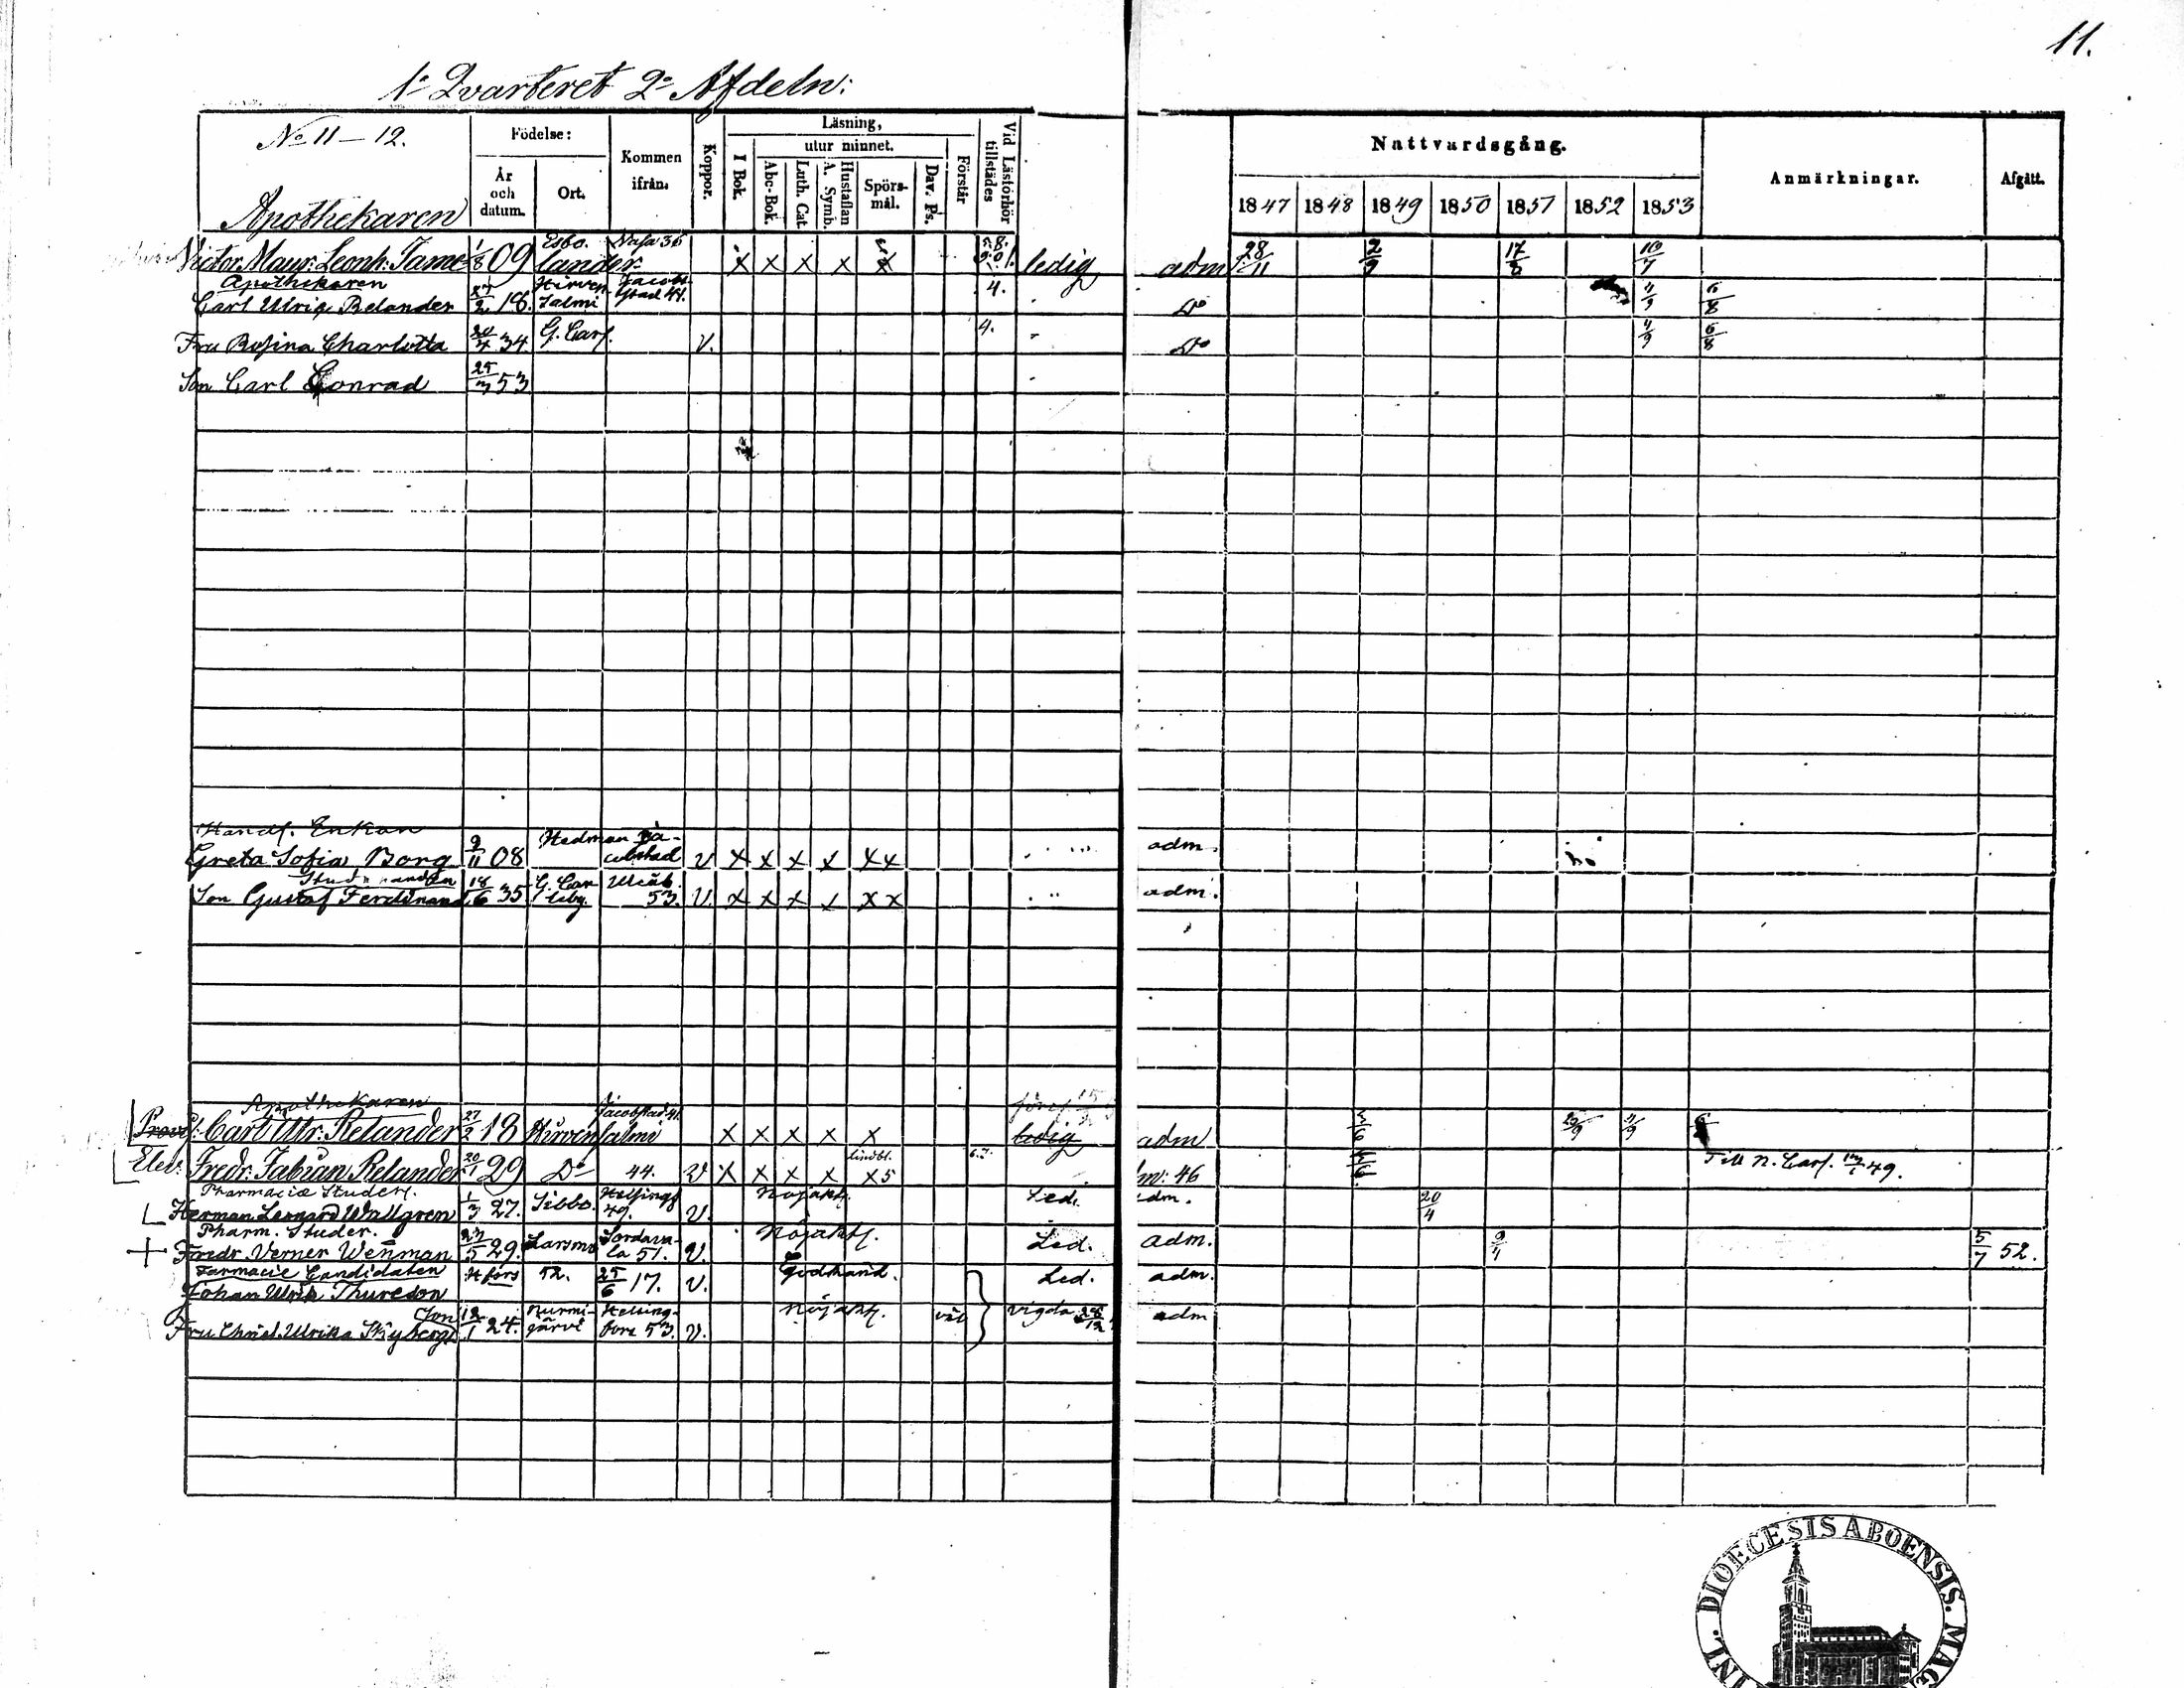 11.
1:a Qvarteret 2:a Afdeln:
No 11-12.
Apothekaren
Födelse:
År och datum.
Ort.
Kommen ifrån.
Koppor.
Läsning,
I Bok.
utur minnet.
Abc-Bok.
Luth. Cat.
Hustaflan A. Symb.
Spörsmål.
Dav. Ps.
Förstår
Vid Läsförhör tillstädes
Nattvardsgång.
1847 1848 1849 1850 1851 1852 1853
Anmärkningar.
Afgått.
Victor Maur: Leonh: Tamelander 1/8 09 Esbo. Vasa 36 x x x x x ledig adm 28/11 2/9 17/8 10/7
Apothekaren
Carl Ulriq Relander 27/2 18. Hirvensalmi Jacobstad 41. 4. Do 11/9 6/8
Fru Rosina Charlotta 20/4 34. G. Carl. V. 4. Do 11/9 6/8
Son Carl Conrad 25/3 53
Handl. Enkan
Greta Sofia Borg 9/11 08 Hedman Jacobstad V x x x x xx adm.
Son Gustaf Ferdinand 18/6 35 G. Carleby. Uleåb. 53. V. x x x x xx adm.
Apothekaren
Prov: Carl Ulr: Relander 27/2 18 Hirvensalmi Jacobstad 41. x x x x x ledig adm 3/6 11/9
Elev. Fredr. Fabian Relander 20/1 29 Do 44. V x x x x x5 adm: 46 Till N. Carl. 49.
Pharmaciæ Studer.
Herman Leonard Wallgren 1/3 27. Sibbo. Helsingf 49. V. Nöjakt. Led. adm. 20/4
Pharm. Studer.
Fredr. Verner Wenman 27/5 29. Larsmo Sordavala 51. V. Nöjaktl. Led. adm. 9/11 5/7 52.
Farmacie Candidaten
Johan Ulrik Thureson Hfors 52. 25/6 17. V. Godkänd. Led. adm.
Fru Christ. Ulrika Skyberg 12/1 24. Nurmijärvi Helsingfors 53. V. Nöjaktl. väl vigda 28/12 adm
DIOECESIS ABOENSIS. MAG
INL.